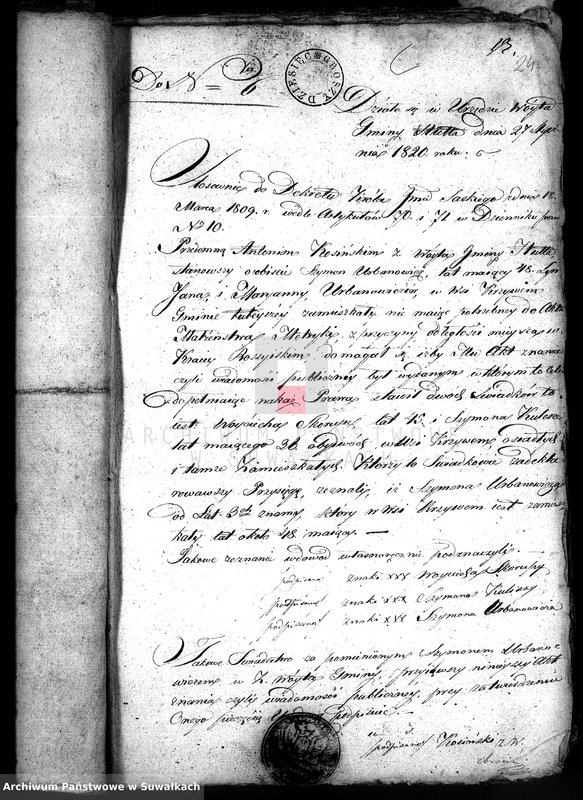 13.
24.
Do N
DZIESIEC GROSZY
Działo się w Urzędzie Woyta
Gminy dnia 27
nia 1820 roku
Stosownie do Dekretu Króla Jmci Saskiego z dnia 18
Marca 1809. r. wedle Artykułów 70. i 71. w Dzienniku praw
No 10.
Przedemną Antonim Kosińskim z. Woyta Gminy
stanowszy osobiście Szymon Urbanowicz, lat maiący 48. Syn
Jana, i Maryanny, Urbanowiczów, w Wsi Krzywem
Gminie tuteyszey zamieszkały nie maiąc potrzebney do Aktu
Małżeństwa Metryki, z przyczyny odległości mieysca w
Kraiu Rossyiskim, domagał się, iżby Mu Akt znania
czyli wiadomości publiczney był wydanym w którym to celu
dopełniaiąc nakaz Prawa, stawił dwóch Świadków to
iest, Woyciecha Skorupę, lat i Szymona
lat maiącego 36. obydwóch w Wsi Krzywem osiadłych
i tamże Zamieszkałych Którzy to Świadkowie zadekla
rowawszy Przysięgę, zeznali, iż Szymona Urbanowicza
od Lat znamy, który w Wsi Krzywem iest zamiesz
kały, lat około 48. maiący. —
Jakowe zeznanie wdowód własnoręcznie podznaczyli.
podpisano znaki xxx Woyciecha Skorupy
podpisano znaki xxx Szymona
podpisano znaki xxx Szymona Urbanowicza
Jakowe Świadectwo za pomienionym Szymonem Urbano
wiczem w Z. Woyta Gminy, przyiąwszy ninieyszy Akt
znania czyli wiadomości publiczney, przy zatwierdzeniu
Onego pieczęcią Podpisuie.
podpisano Kosiński z. W.
ARCHIWUM PAŃSTWOWE
W SUWAŁKACH
Archiwum Państwowe w Suwałkach